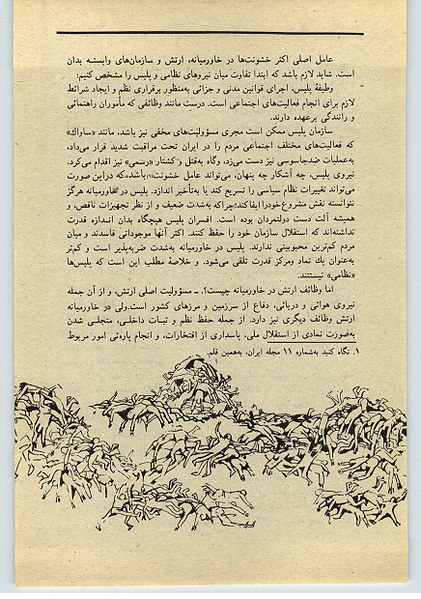 عامل اصلی اکثر خشونت‌ها در خاورمیانه، ارتش و سازمان‌های وابسته بدان
است. شاید لازم باشد که ابتدا تفاوت میان نیروهای نظامی و پلیس را مشخص کنیم:
وظیفهٔ پلیس، اجرای قوانین مدنی و جزائی به‌منظور برقراری نظم و ایجاد شرائط
لازم برای انجام فعالیت‌های اجتماعی است. درست مانند وظائفی که مأموران راهنمائی
و رانندگی برعهده دارند.
سازمان پلیس ممکن است مجری مسؤولیت‌های مخفی نیز باشد، مانند «ساواك»
که فعالیت‌های مختلف اجتماعی مردم را در ایران تحت مراقبت شدید قرار می‌داد،
به‌عملیات ضدجاسوسی نیز دست می‌زد، وگاه به‌قتل و کشتار «رسمی» نیز اقدام می‌کرد.
نیروی پلیس، چه آشکار چه پنهان، می‌تواند عامل خشونت(۱) باشد، که دراین صورت
می‌تواند تغییرات نظام سیاسی را تسریع کند یا به‌تأخیر اندازد. پلیس در خاورمیانه هرگز
نتوانسته نقش مشروع خودرا ایفا کند؛ چرا که به‌شدت ضعیف و از نظر تجهیزات ناقص، و
همیشه آلت دست دولتمردان بوده است. افسران پلیس هیچگاه بدان اندازه قدرت
نداشته‌اند که استقلال سازمان خود را حفظ کنند. اکثر آنها موجوداتی فاسدند و میان
مردم کم‌ترین محبوبیتی ندارند. پلیس در خاورمیانه به‌شدت ضربه‌پذیر است و کم‌تر
به‌عنوان یك نماد ومرکز قدرت تلقی می‌شود. و خلاصهٔ مطلب این است که پلیس‌ها
«نظامی» نیستند.
اما وظائف ارتش در خاورمیانه چیست؟ ـ مسؤولیت اصلی ارتش، و از آن جمله
نیروی هوائی و دریائی، دفاع از سرزمین و مرزهای کشور است.ولی در خاورمیانه
ارتش وظائف دیگری نیز دارد. از جمله حفظ نظم و ثبات داخلی، متجلی شدن
به‌صورت نمادی از استقلال ملی، پاسداری از افتخارات، و انجام پاره‌ئی امور مربوط
۱. نگاه کنید به‌شماره ۱۱ مجله ایران، به‌همین قلم.